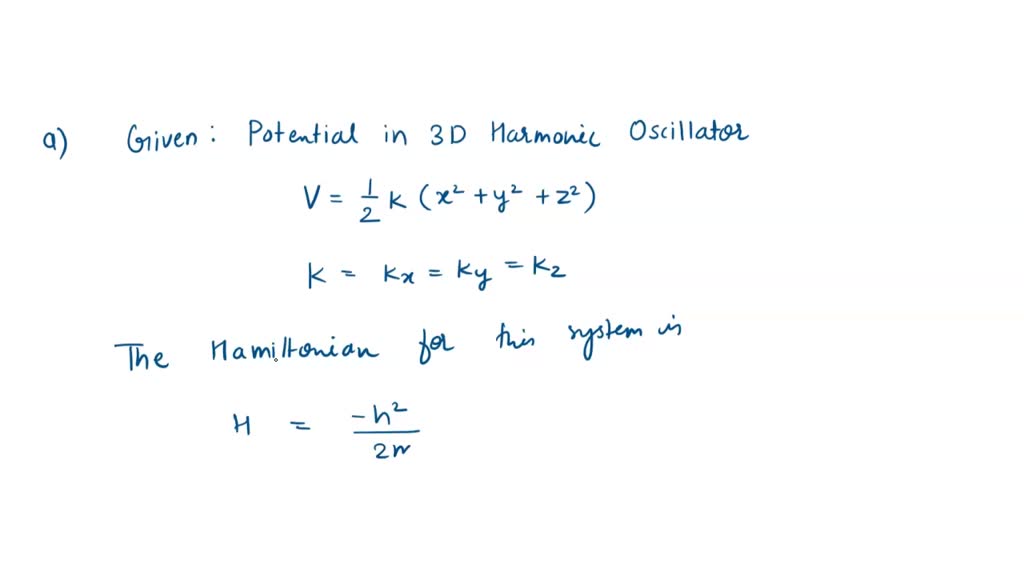 a) Given: Potential in 3D Harmonic Oscillator
V = 1/2 k (x² + y² + z²)
k = kx = ky = kz
The Hamiltonian for this system is
H = -h²/2m